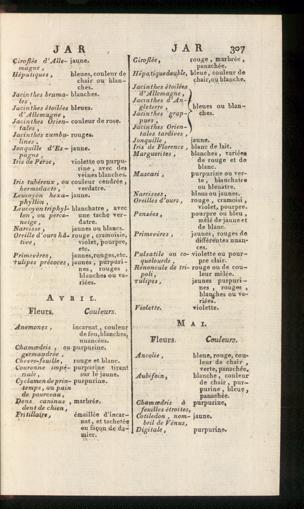 JAR
Giroflée d'Alle- jaune.
magne,
Hépatiques, bleues, couleur de
chair ou blan-
ches.
Jacinthes bruma- blanches.
les,
Jacinthes étoilées bleues.
d'Allemagne,
Jacinthes Orien- couleur de rose.
tales,
Jacinthes zumbu- rouges.
lines,
Jonquille d'Es- jaune.
pagne,
Iris de Perse, violette ou purpu-
rine, avec des
veines blanches.
Iris tubéreux, ou couleur cendrée,
hermodacte, verdatre.
Leucoyon hexa- jaune.
phyllon,
Leucoyon triphyl- blanchatre, avec
lon, ou perce- une tache ver-
neige, datre.
Narcisse, jaunes ou blancs.
Oreille d'ours hâ- rouge, cramoisie,
tive, violet, pourpre,
etc.
Primevères, jaunes, rouges, etc.
Tulipes précoces, jaunes, purpuri-
nes, rouges,
blanches ou va-
riées.
AVRIL.
Fleurs. Couleurs.
Anemones, incarnat, couleur
de feu, blanches,
nuancées.
Chamœdris, ou purpurine.
germandrée,
Chevre-feuille, rouge et blanc.
Couronne impé- purpurine tirant
riale, sur le jaune.
Cyclamen de prin- purpurine.
temps, ou pain
de pourceau,
Dens caninus, marbrée.
dent de chien,
Fritillaire, émaillée d'incar-
nat, et tachetée
en façon de da-
mier.
JAR 307
Giroflée, rouge, marbrée,
panachée.
Hépatique double, bleue, couleur de
chair, ou blanche.
Jacinthes étoilées
d'Allemagne,
Jacinthes d'An-
gleterre,
Jacinthes grap- bleues ou blan-
pues, ches.
Jacinthes Orien-
tales tardives,
Jonquille, jaune.
Iris de Florence, blanc de lait.
Marguerites, blanches, variées
de rouge et de
blanc.
Muscari, purpurine ou ver-
te, blanchatre
ou bleuatre.
Narcisses, bleus ou jaunes.
Oreilles d'ours, rouge, cramoisi,
violet, pourpre.
Pensées, pourpre ou bleu,
mêlé de jaune et
de blanc.
Primevères, jaunes, rouges de
différentes nuan-
ces.
Pulsatile ou co- violette ou pour-
quelourde, pre clair.
Renoncule de tri- rouge ou de cou-
poli, leur mêlée.
Tulipes, jaunes purpuri-
nes, rouges,
blanches ou va-
riées.
Violette. violette.
MAI.
Fleurs. Couleurs.
Ancolie, bleue, rouge, cou-
leur de chair,
verte, panachée.
Aubifoin, blanche, couleur
de chair, pur-
purine, bleue,
panachée.
Chamœdris à purpurine.
feuilles étroites,
Cotiledon, nom- jaune.
bril de Vénus,
Digitale, purpurine.